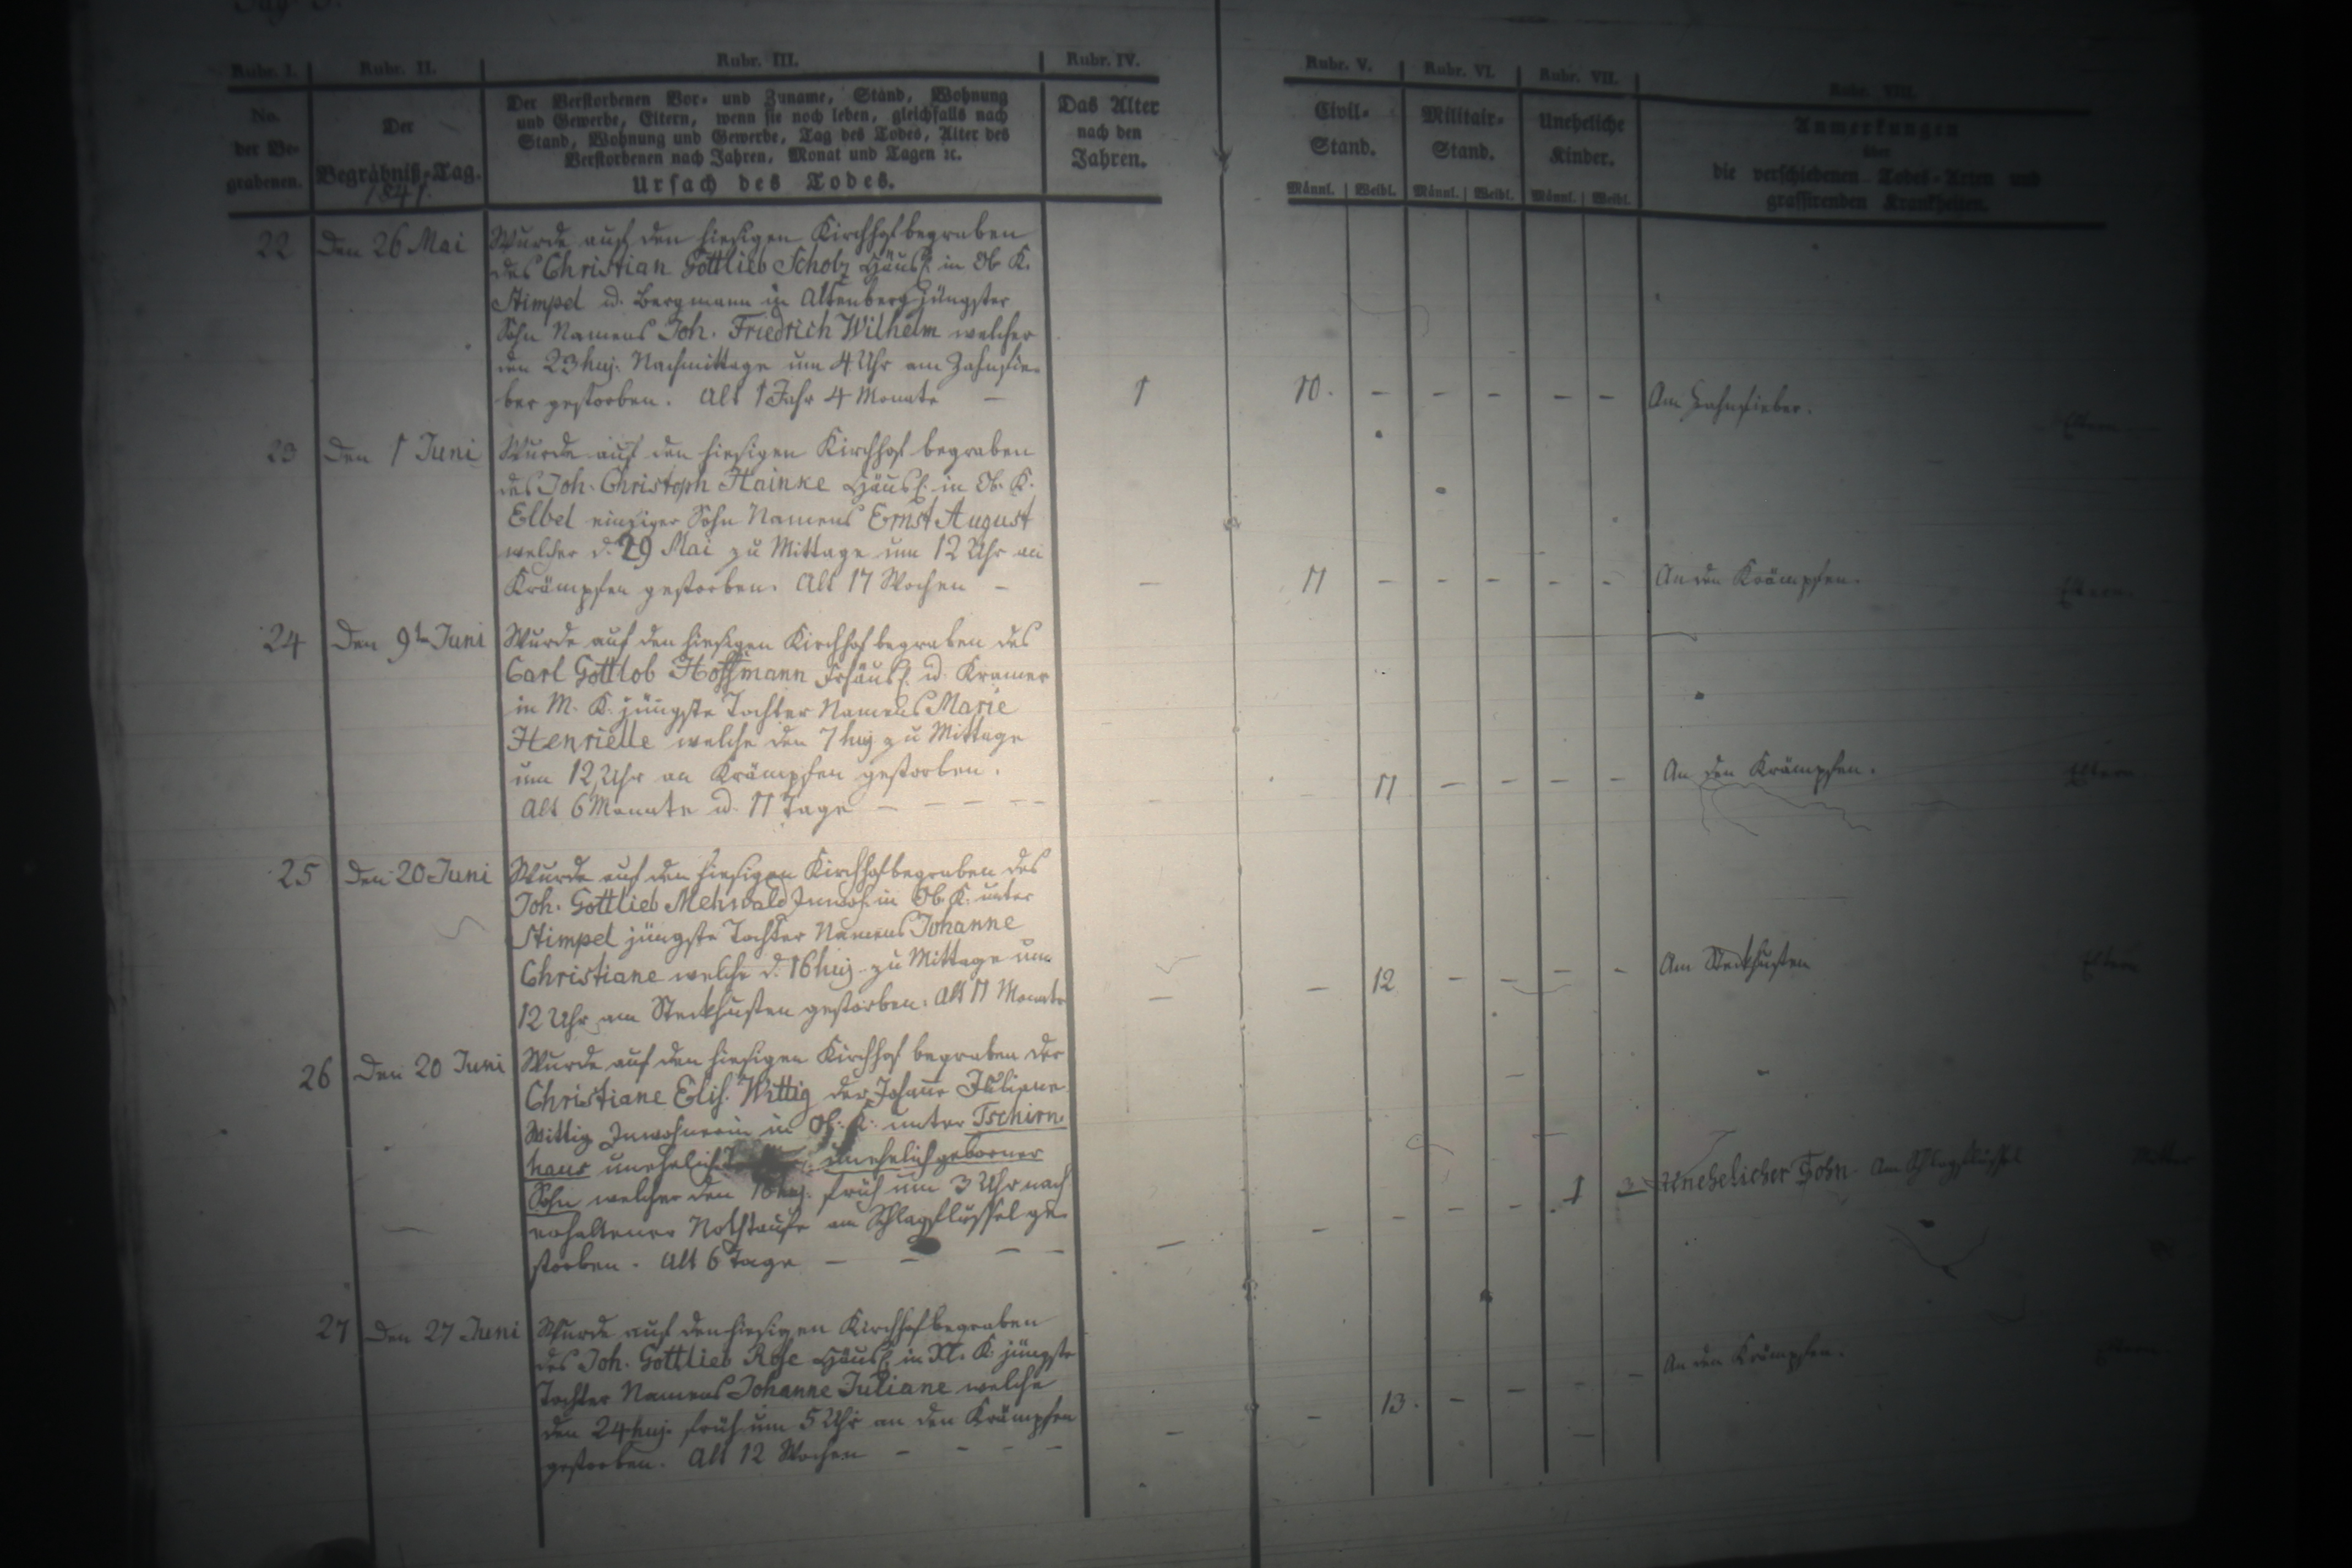 Pag. 3.
Rubr. I. Rubr. II. Rubr. III. Rubr. IV. Rubr. V. Rubr. VI. Rubr. VII. Rubr. VIII.
No. der Be-grabenen.
Der Begräbniß-Tag.
1841.
Der Verstorbenen Vor- und Zuname, Stand, Wohnung
und Gewerbe, Eltern, wenn sie noch leben, gleichfalls nach
Stand, Wohnung und Gewerbe, Tag des Todes, Alter des
Verstorbenen nach Jahren, Monat und Tagen ꝛc.
Ursach des Todes.
Das Alter
nach den
Jahren.
Civil-
Stand.
Männl. Weibl.
Militair-
Stand.
Männl. Weibl.
Uneheliche
Kinder.
Männl. Weibl.
Anmerkungen
über
die verschiedenen Todes-Arten und
grassirenden Krankheiten.
22 Den 26 Mai Wurde auf den hiesigen Kirchhof begraben
des Christian Gottlieb Scholz Häusl. in Ob. K.
Stimpel u. Bergmann in Altenberg jüngster
Sohn Namens Joh. Friedrich Wilhelm welcher
den 23 huj. Nachmittage um 4 Uhr am Zahnfie-
ber gestorben. Alt 1 Jahr 4 Monate – 1 10. – – – – – Am Zahnfieber. Eltern
23 Den 1 Juni Wurde auf den hiesigen Kirchhof begraben
des Joh. Christoph Hainke Häusl. in Ob. K.
Elbel einziger Sohn Namens Ernst August
welcher d. 29 Mai zu Mittage um 12 Uhr an
Krämpfen gestorben. Alt 17 Wochen – – 11 – – – – – An den Krämpfen. Eltern.
24 Den 9ten Juni Wurde auf den hiesigen Kirchhof begraben des
Carl Gottlob Hoffmann Frhäusl. u. Kramer
in M. K. jüngste Tochter Namens Marie
Henrielle welche den 7 huj zu Mittage
um 12 Uhr an Krämpfen gestorben.
Alt 6 Monate u. 11 Tage – – – – – – – 11 – – – – An den Krämpfen. Eltern
25 Den 20 Juni Wurde auf den hiesigen Kirchhof begraben des
Joh. Gottlieb Mehwald Inwoh. in Ob. K. unter
Stimpel jüngste Tochter Namens Johanne
Christiane welche d. 16 huj. zu Mittage um
12 Uhr am Steckhusten gestorben. Alt 11 Monate – – 12 – – – – Am Steckhusten Eltern
26 Den 20 Juni Wurde auf den hiesigen Kirchhof begraben der
Christiane Elis. Wittig der Johanne Juliane
Wittig Inwohnerin in Ob. K. unter Tschirn-
haus unehelich unehelich geborner
Sohn welcher den 16 huj. früh um 3 Uhr nach
erhaltener Nothtaufe am Schlagflüssel ge-
storben. Alt 6 Tage – – – – – – – – – 1 Unehelicher Sohn Am Schlagflüssel Mutter
27 Den 27 Juni Wurde auf den hiesigen Kirchhof begraben
des Joh. Gottlieb Rose Häusl. in M. K. jüngste
Tochter Namens Johanne Juliane welche
den 24 huj. früh um 5 Uhr an den Krämpfen
gestorben. Alt 12 Wochen – – – – – – 13. – – – – An den Krämpfen. Eltern